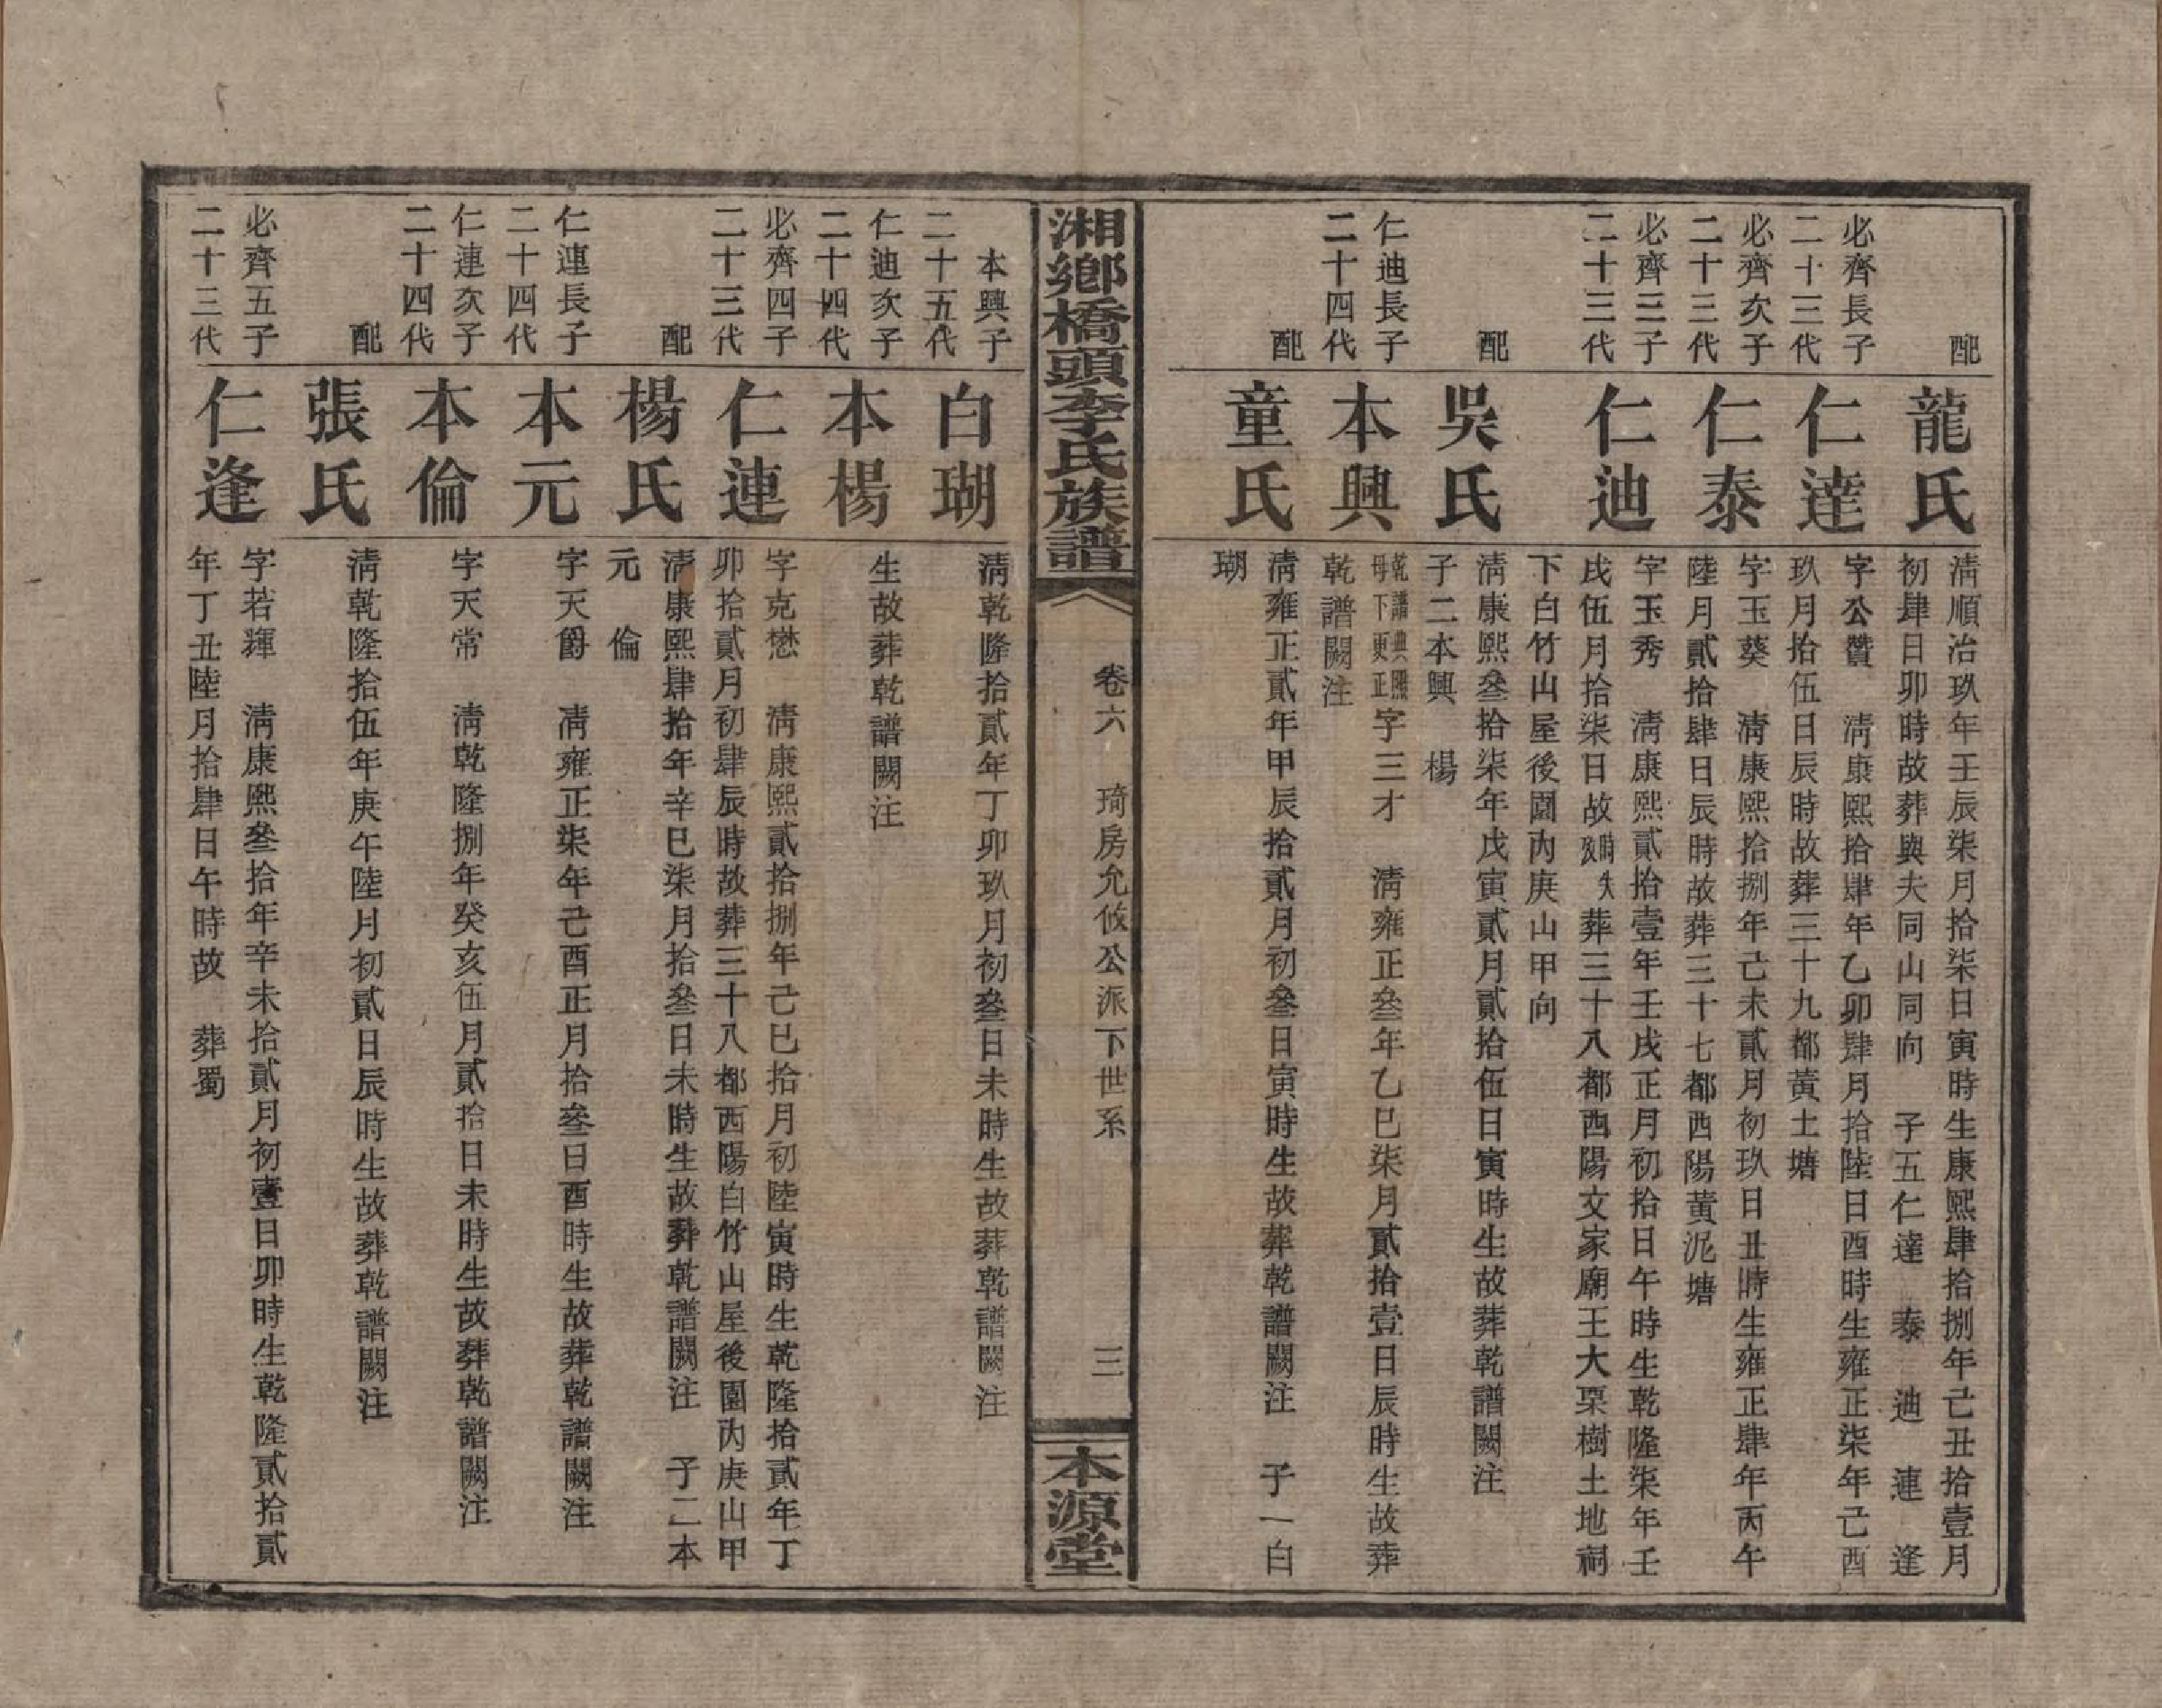 配
龍氏
淸順治玖年壬辰柒月拾柒日寅時生康熙肆拾捌年己丑拾壹月
初肆日卯時故葬與夫同山同向　子五仁達　泰　迪　連　逢
必齊長子
二十三代
仁達
字公贊　淸康熙拾肆年乙卯肆月拾陸日酉時生雍正柒年己酉
玖月拾伍日辰時故葬三十九都黃土塘
必齊次子
二十三代
仁泰
字玉葵　淸康熙拾捌年己未貳月初玖日丑時生雍正肆年丙午
陸月貳拾肆日辰時故葬三十七都西陽黃泥塘
必齊三子
二十三代
仁迪
字玉秀　淸康熙貳拾壹年壬戌正月初拾日午時生乾隆柒年壬
戌伍月拾柒日故時失攷葬三十八都西陽文家廟王大栗樹土地祠
下白竹山屋後園內庚山甲向
配
吳氏
淸康熙叄拾柒年戊寅貳月貳拾伍日寅時生故葬乾譜闕注
子二本興　楊
仁迪長子
二十四代
本興
乾譜典熙
母下更正
字三才　淸雍正叄年乙巳柒月貳拾壹日辰時生故葬
乾譜闕注
配
童氏
淸雍正貳年甲辰拾貳月初叄日寅時生故葬乾譜闕注　子一白
瑚
湘鄉橋頭李氏族譜
卷六　琦房允攸公派下世系
三
本源堂
本興子
二十五代
白瑚
淸乾隆拾貳年丁卯玖月初叄日未時生故葬乾譜闕注
仁迪次子
二十四代
本楊
生故葬乾譜闕注
必齊四子
二十三代
仁連
字克懋　淸康熙貳拾捌年己巳拾月初陸寅時生乾隆拾貳年丁
卯拾貳月初肆辰時故葬三十八都西陽白竹山屋後園內庚山甲
配
楊氏
淸康熙肆拾年辛巳柒月拾叄日未時生故葬乾譜闕注　子二本
元　倫
仁連長子
二十四代
本元
字天爵　淸雍正柒年己酉正月拾叄日酉時生故葬乾譜闕注
仁連次子
二十四代
本倫
字天常　淸乾隆捌年癸亥伍月貳拾日未時生故葬乾譜闕注
配
張氏
淸乾隆拾伍年庚午陸月初貳日辰時生故葬乾譜闕注
必齊五子
二十三代
仁逢
字若輝　淸康熙叄拾年辛未拾貳月初壹日卯時生乾隆貳拾貳
年丁丑陸月拾肆日午時故　葬蜀